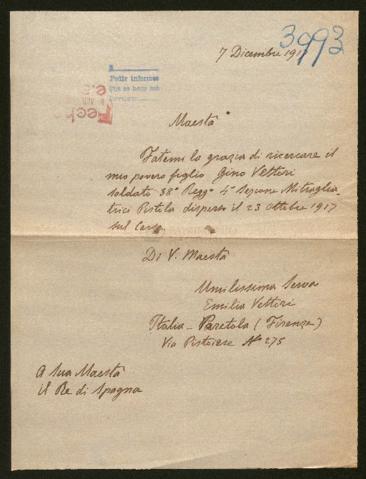 3993
7 Dicembre 191
Pedir informes
Fecha
Maestà
Fatemi la grazia di ricercare il
mio povero figlio Gino Vettori
soldato 38° Regg° 4ª Sezione Mitraglia
trici Pistola disperso il 23 Ottobre 1917
sul Carso
Di V. Maestà
Umilissima Serva
Emilia Vettori
Italia - Peretola (Firenze)
Via Pistoiese N° 275
A Sua Maestà
il Re di Spagna